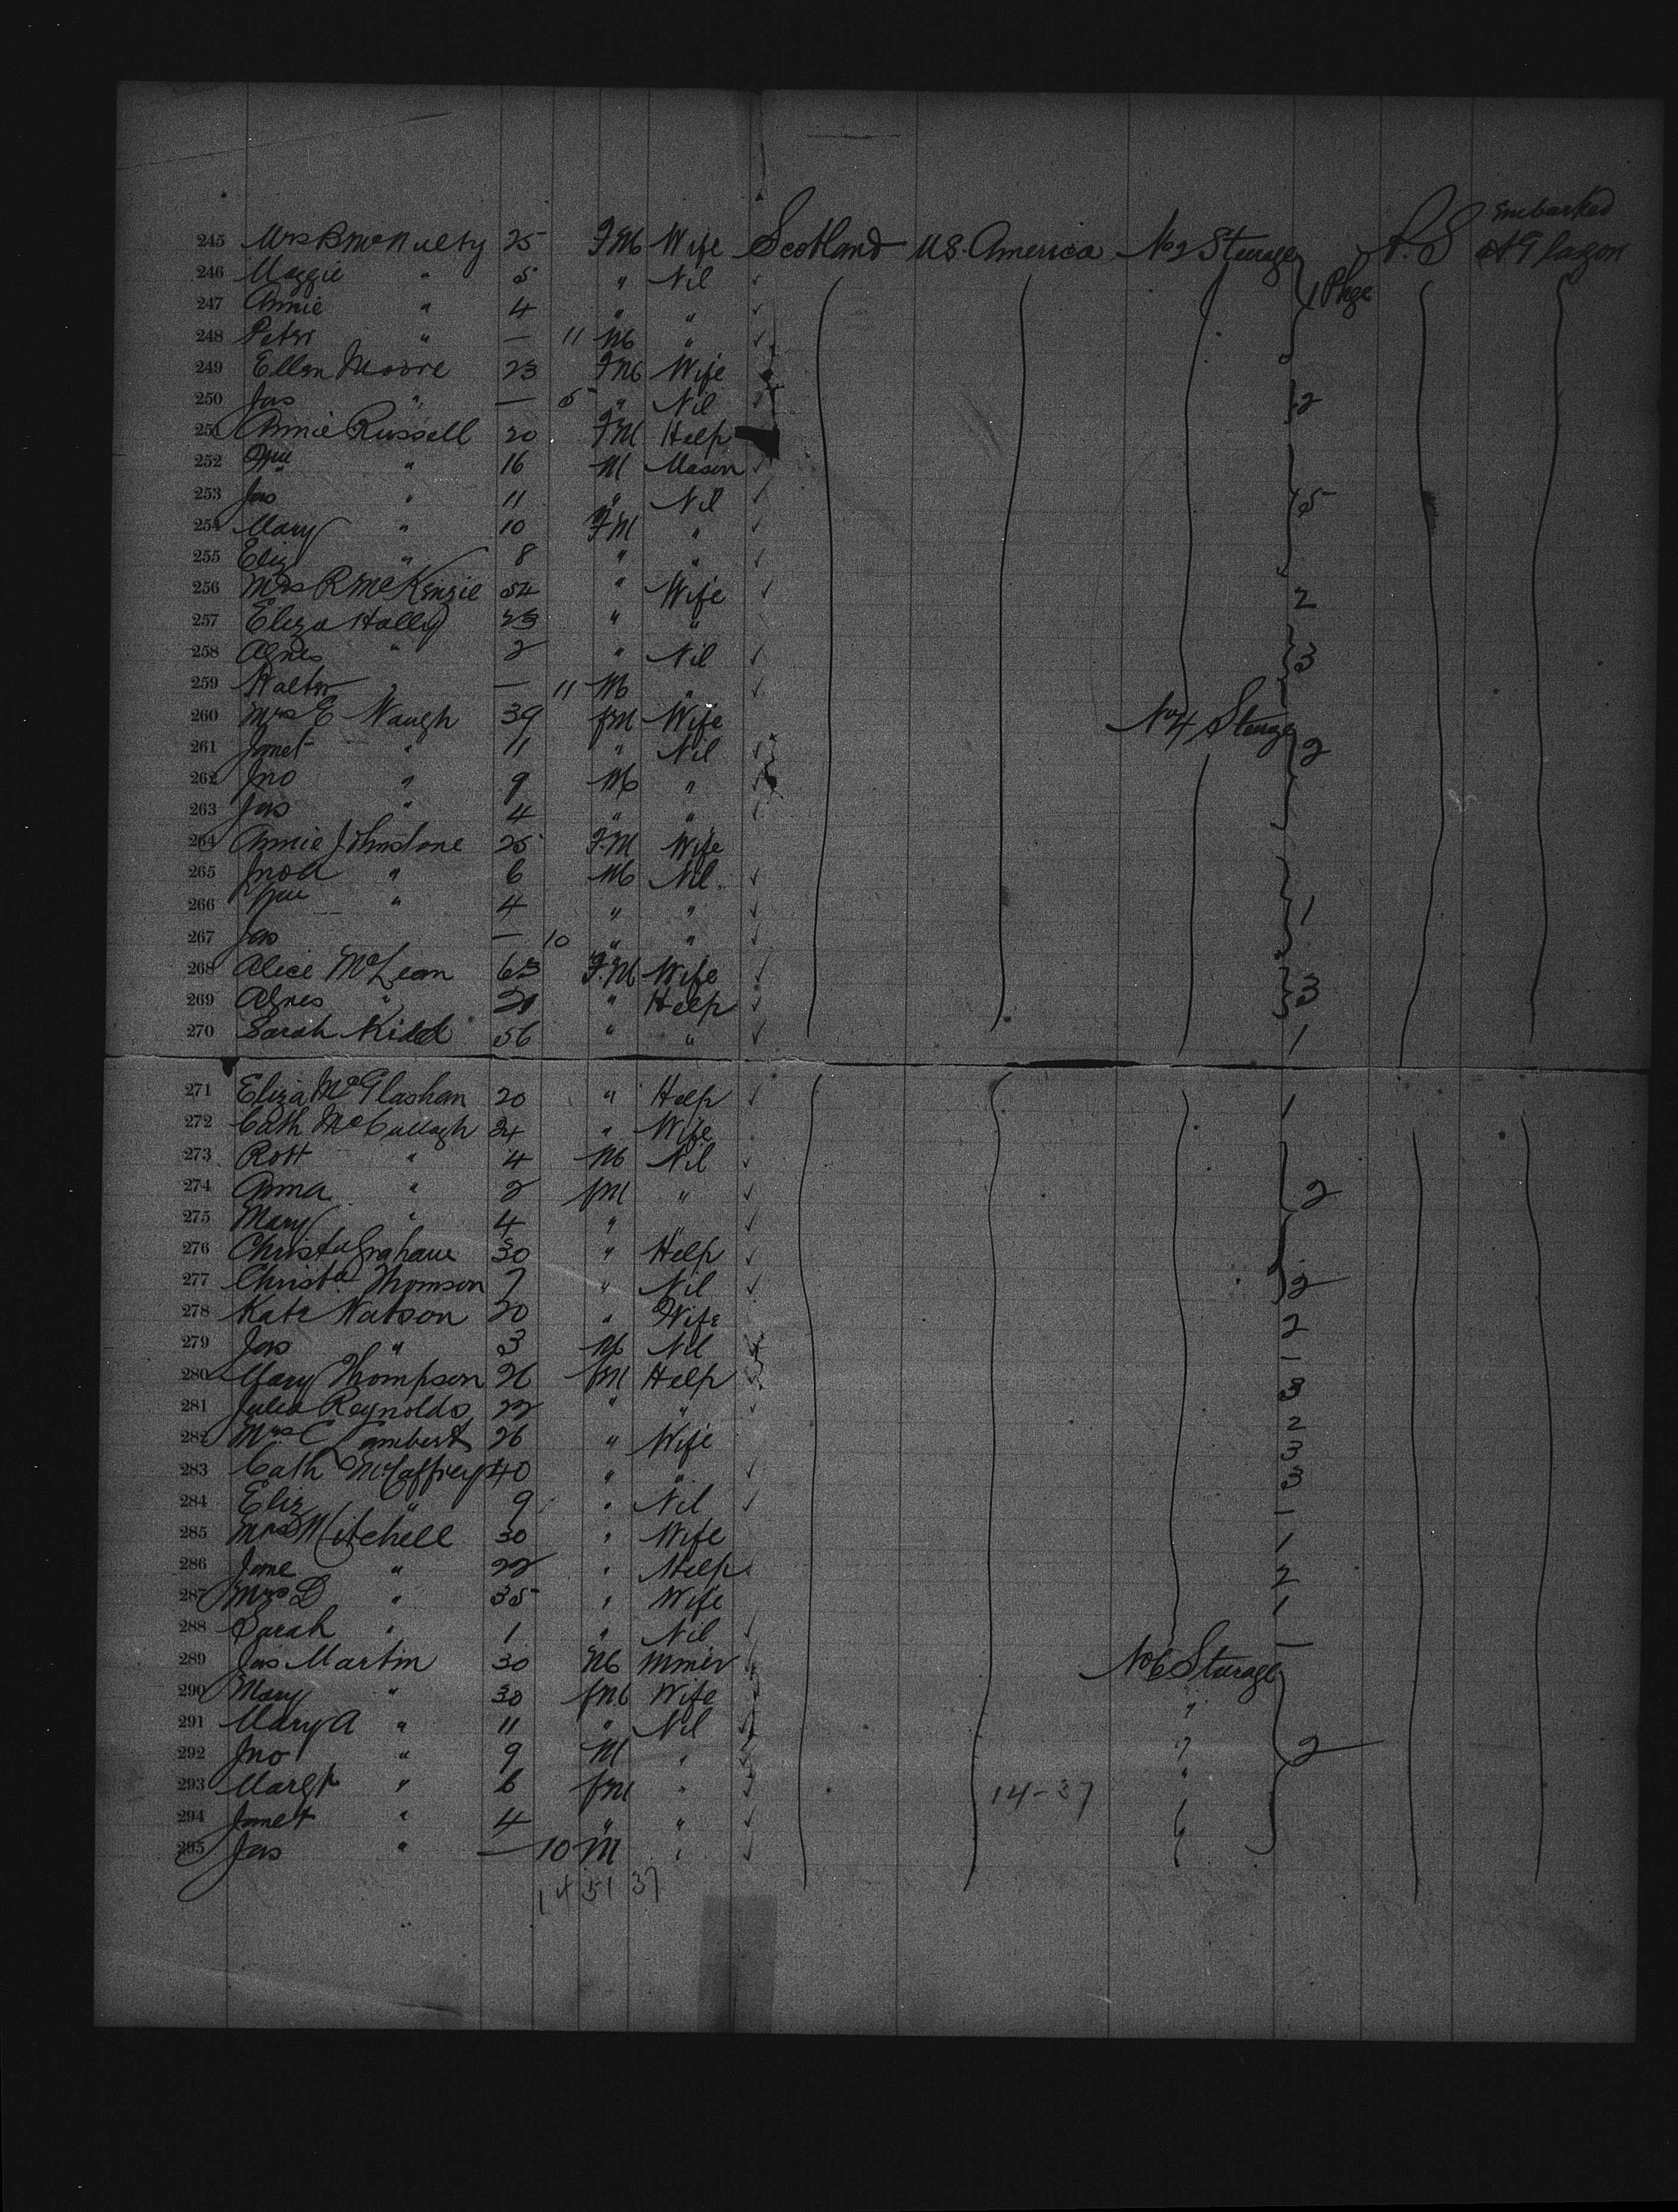 Embarked
245 Mrs B McNulty 25 FM Wife Scotland U.S. America No 2 Steerage A. S At Glasgow
246 Maggie " 5 " Nil ✓ 1 Pkge
247 Annie " 4 " " ✓
248 Peter " — 11 M " ✓
249 Ellen Moore 23 FM Wife
250 Jas " — 5 " Nil 2
251 Annie Russell 20 FM Help
252 Wm " 16 M Mason ✓
253 Jas " 11 " Nil ✓ 5
254 Mary " 10 FM " ✓
255 Eliz " 8 " " ✓
256 Mrs R McKenzie 54 " Wife ✓ 2
257 Eliza Hally 23 " "
258 Agnes " 2 " Nil ✓ 3
259 Walter " — 11 M " ✓
260 Mrs E Waugh 39 fM Wife No 4 Steerage
261 Janet " 11 " Nil ✓ 2
262 Jno " 9 M " ✓
263 Jas " 4 " " ✓
264 Annie Johnstone 25 F.M Wife
265 Jno A " 6 M Nil ✓
266 Wm " 4 " " ✓ 1
267 Jas — 10 " " ✓
268 Alice McLean 63 F.M Wife ✓
269 Agnes " 21 " Help ✓ 3
270 Sarah Kidd 56 " " ✓ 1
271 Eliza McGlashan 20 " Help ✓ 1
272 Cath McCullagh 24 " Wife
273 Robt " 4 M Nil ✓
274 Anna " 2 fM " ✓ 2
275 Mary " 4 " " ✓
276 Christa Grahame 30 " Help ✓
277 Christa Thomson 7 " Nil ✓ 2
278 Kate Watson 20 " Wife 2
279 Jas " 3 M Nil ✓ —
280 Mary Thompson 26 fM Help ✓ 3
281 Julia Reynolds 22 " " ✓ 2
282 Mrs C Lambert 26 " Wife 3
283 Cath McCaffrey 40 " " ✓ 3
284 Eliz " 9 " Nil ✓ —
285 Mrs Mitchell 30 " Wife 1
286 Jane " 22 " Help 2
287 Mrs D " 35 " Wife 1
288 Sarah " 1 " Nil ✓ —
289 Jas Martin 30 M Miner ✓ No 6 Steerage
290 Mary " 30 fM Wife ✓ "
291 Mary A " 11 " Nil ✓
292 Jno " 9 M " ✓ " 2
293 Margt " 6 fM " ✓ 14-37 "
294 Janet " 4 " " ✓
295 Jas " — 10 M " ✓ "
1 4 51 37